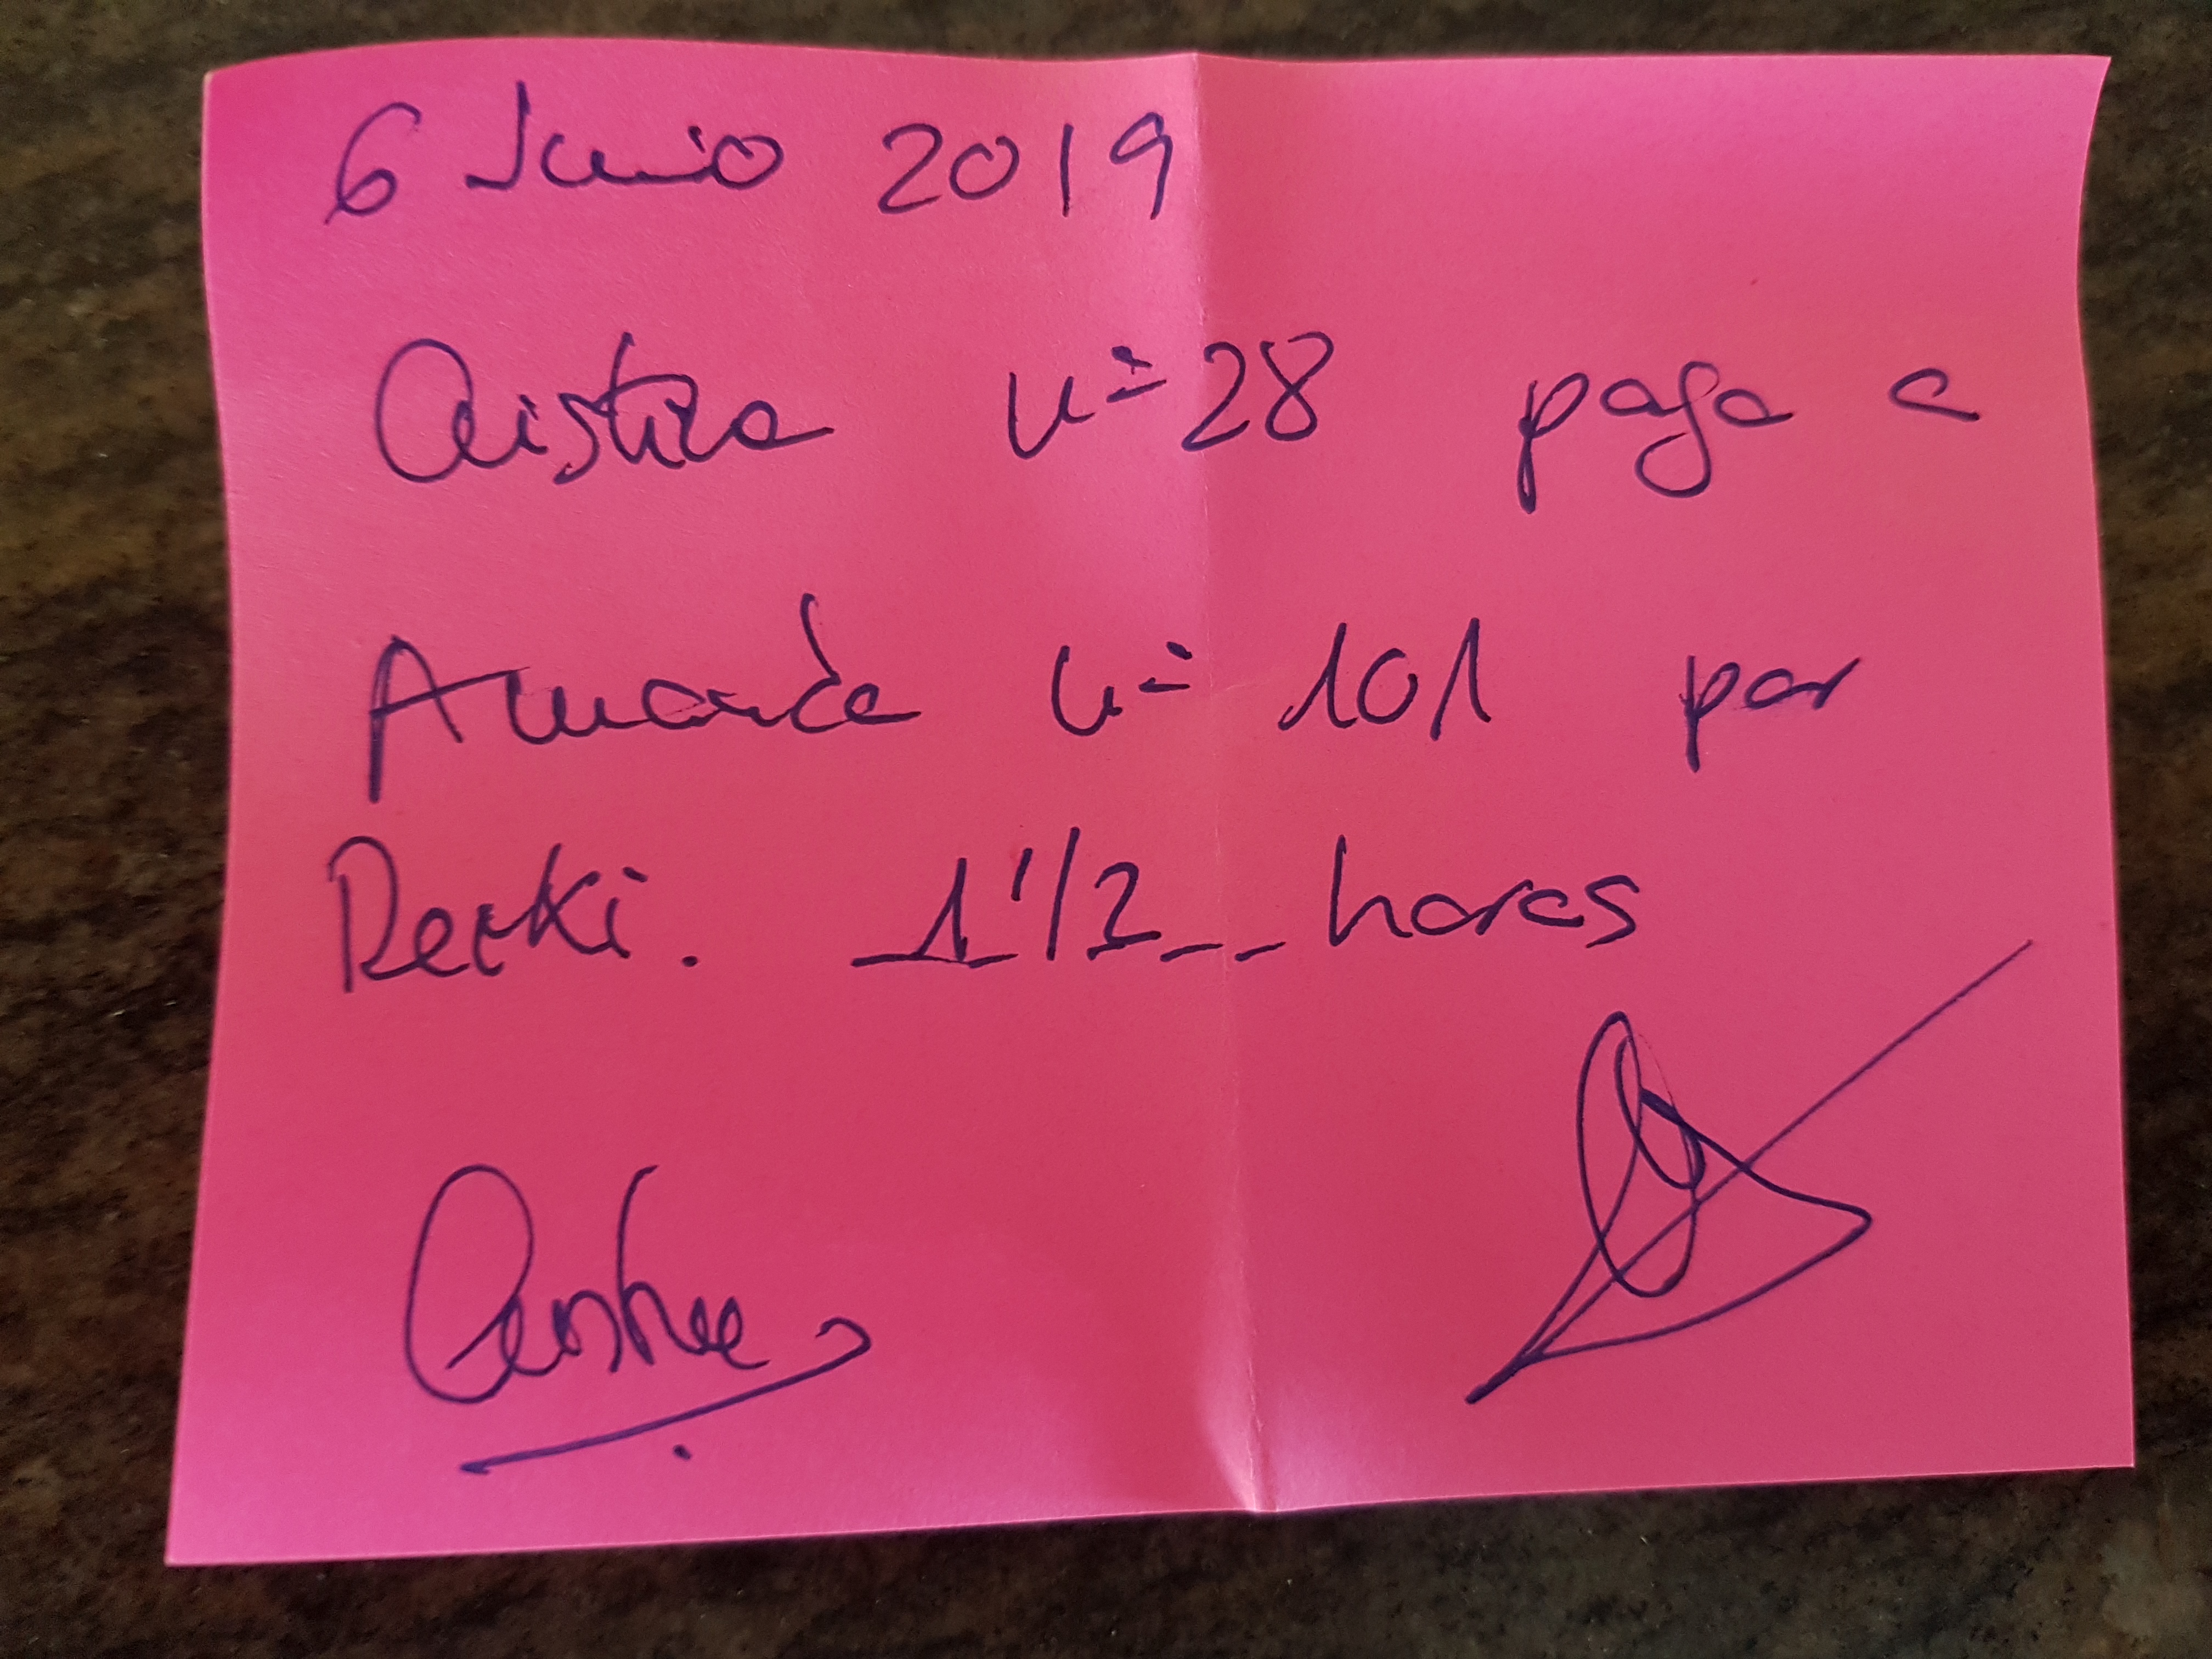 6 Junio 2019
Cristina nº 28 paga a
Amanda nº 101 por
Reiki. 1 1/2 horas